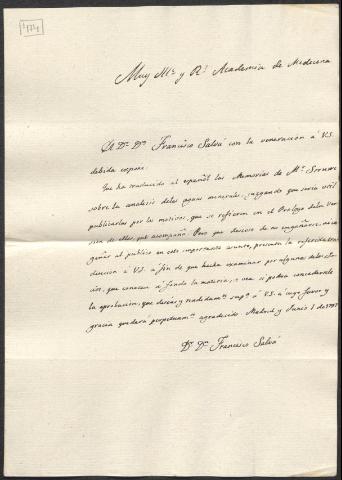 Muy Ill.e y R.l Academia de Medicina
El D.r D.n Francisco Salvá con la veneracion á V.S.
debida expone:
Que ha traducido al español las Memorias de M.r
sobre la analisis de las aguas minerales, juzgando que seria util
publicarlas por los motivos, que se refieren en el Prologo de la Ver-
sion de ellas, que acompaña. Pero que deseoso de no engañarse, ni en-
gañar al publico en este importante asunto, presenta la referida tra-
duccion á V.S. á fin de que hecha examinar por algunos de los So-
cios, que conocen á fondo la materia, vea si podrá concederle
la aprobacion, que desea, y rendidam.te sup.ca á V.S. á cuyo favor y
gracia quedará perpetuam.te agradecido Madrid y Junio 1 de
D.r D.n Francisco Salvá